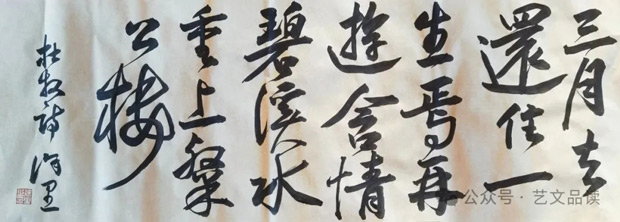 三月去
還住一
生焉再
遊含情
碧溪水
重上粲
公樓
杜牧诗
公众号 · 艺文品读